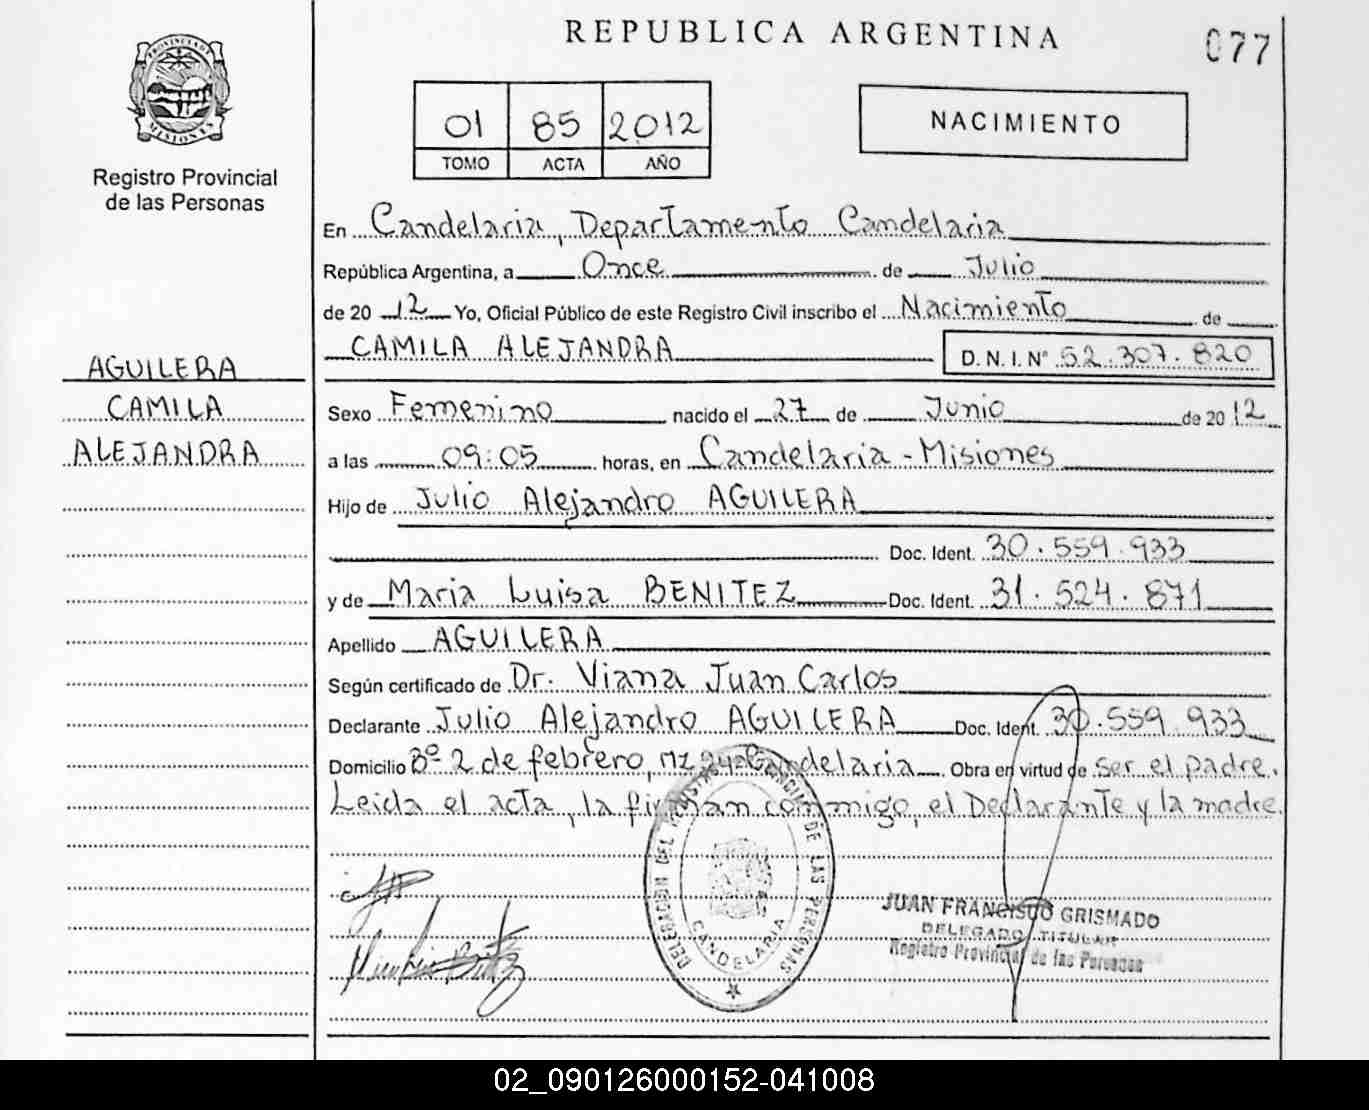 REPUBLICA ARGENTINA
077
PROVINCIA DE MISIONES
Registro Provincial
de las Personas
01 85 2012
TOMO ACTA AÑO
NACIMIENTO
En Candelaria, Departamento Candelaria
República Argentina, a Once de Julio
de 20 12 Yo, Oficial Público de este Registro Civil inscribo el Nacimiento de
CAMILA ALEJANDRA D. N. I. Nº 52.307.820
AGUILERA
CAMILA
ALEJANDRA
Sexo Femenino nacido el 27 de Junio de 20 12
a las 09:05 horas, en Candelaria - Misiones
Hijo de Julio Alejandro AGUILERA
Doc. Ident. 30.559.933
y de Maria Luisa BENITEZ Doc. Ident. 31.524.871
Apellido AGUILERA
Según certificado de Dr. Viana Juan Carlos
Declarante Julio Alejandro AGUILERA Doc. Ident. 30.559.933
Domicilio Bº 2 de febrero, Mz 24 Candelaria Obra en virtud de ser el padre.
Leida el acta, la firman conmigo, el Declarante y la madre.
DELEGACION DEL REGISTRO PROVINCIAL DE LAS PERSONAS
CANDELARIA
JUAN FRANCISCO GRISMADO
DELEGADO TITULAR
Registro Provincial de las Personas
02_090126000152-041008